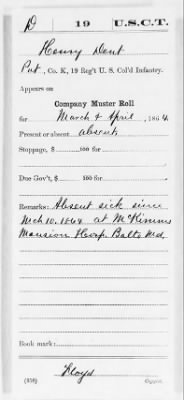 D 19 U.S.C.T.
Henry Dent
Pvt., Co. K, 19 Reg't U. S. Col'd Infantry.
Appears on
Company Muster Roll
for March & April, 1864.
Present or absent absent
Stoppage, $ 100 for
Due Gov't, $ 100 for
Remarks: Absent sick since
Mch 10, 1864 at McKimms
Mansion Hosp. Balto Md.
Book mark:
Floyd
(358) Copyist.